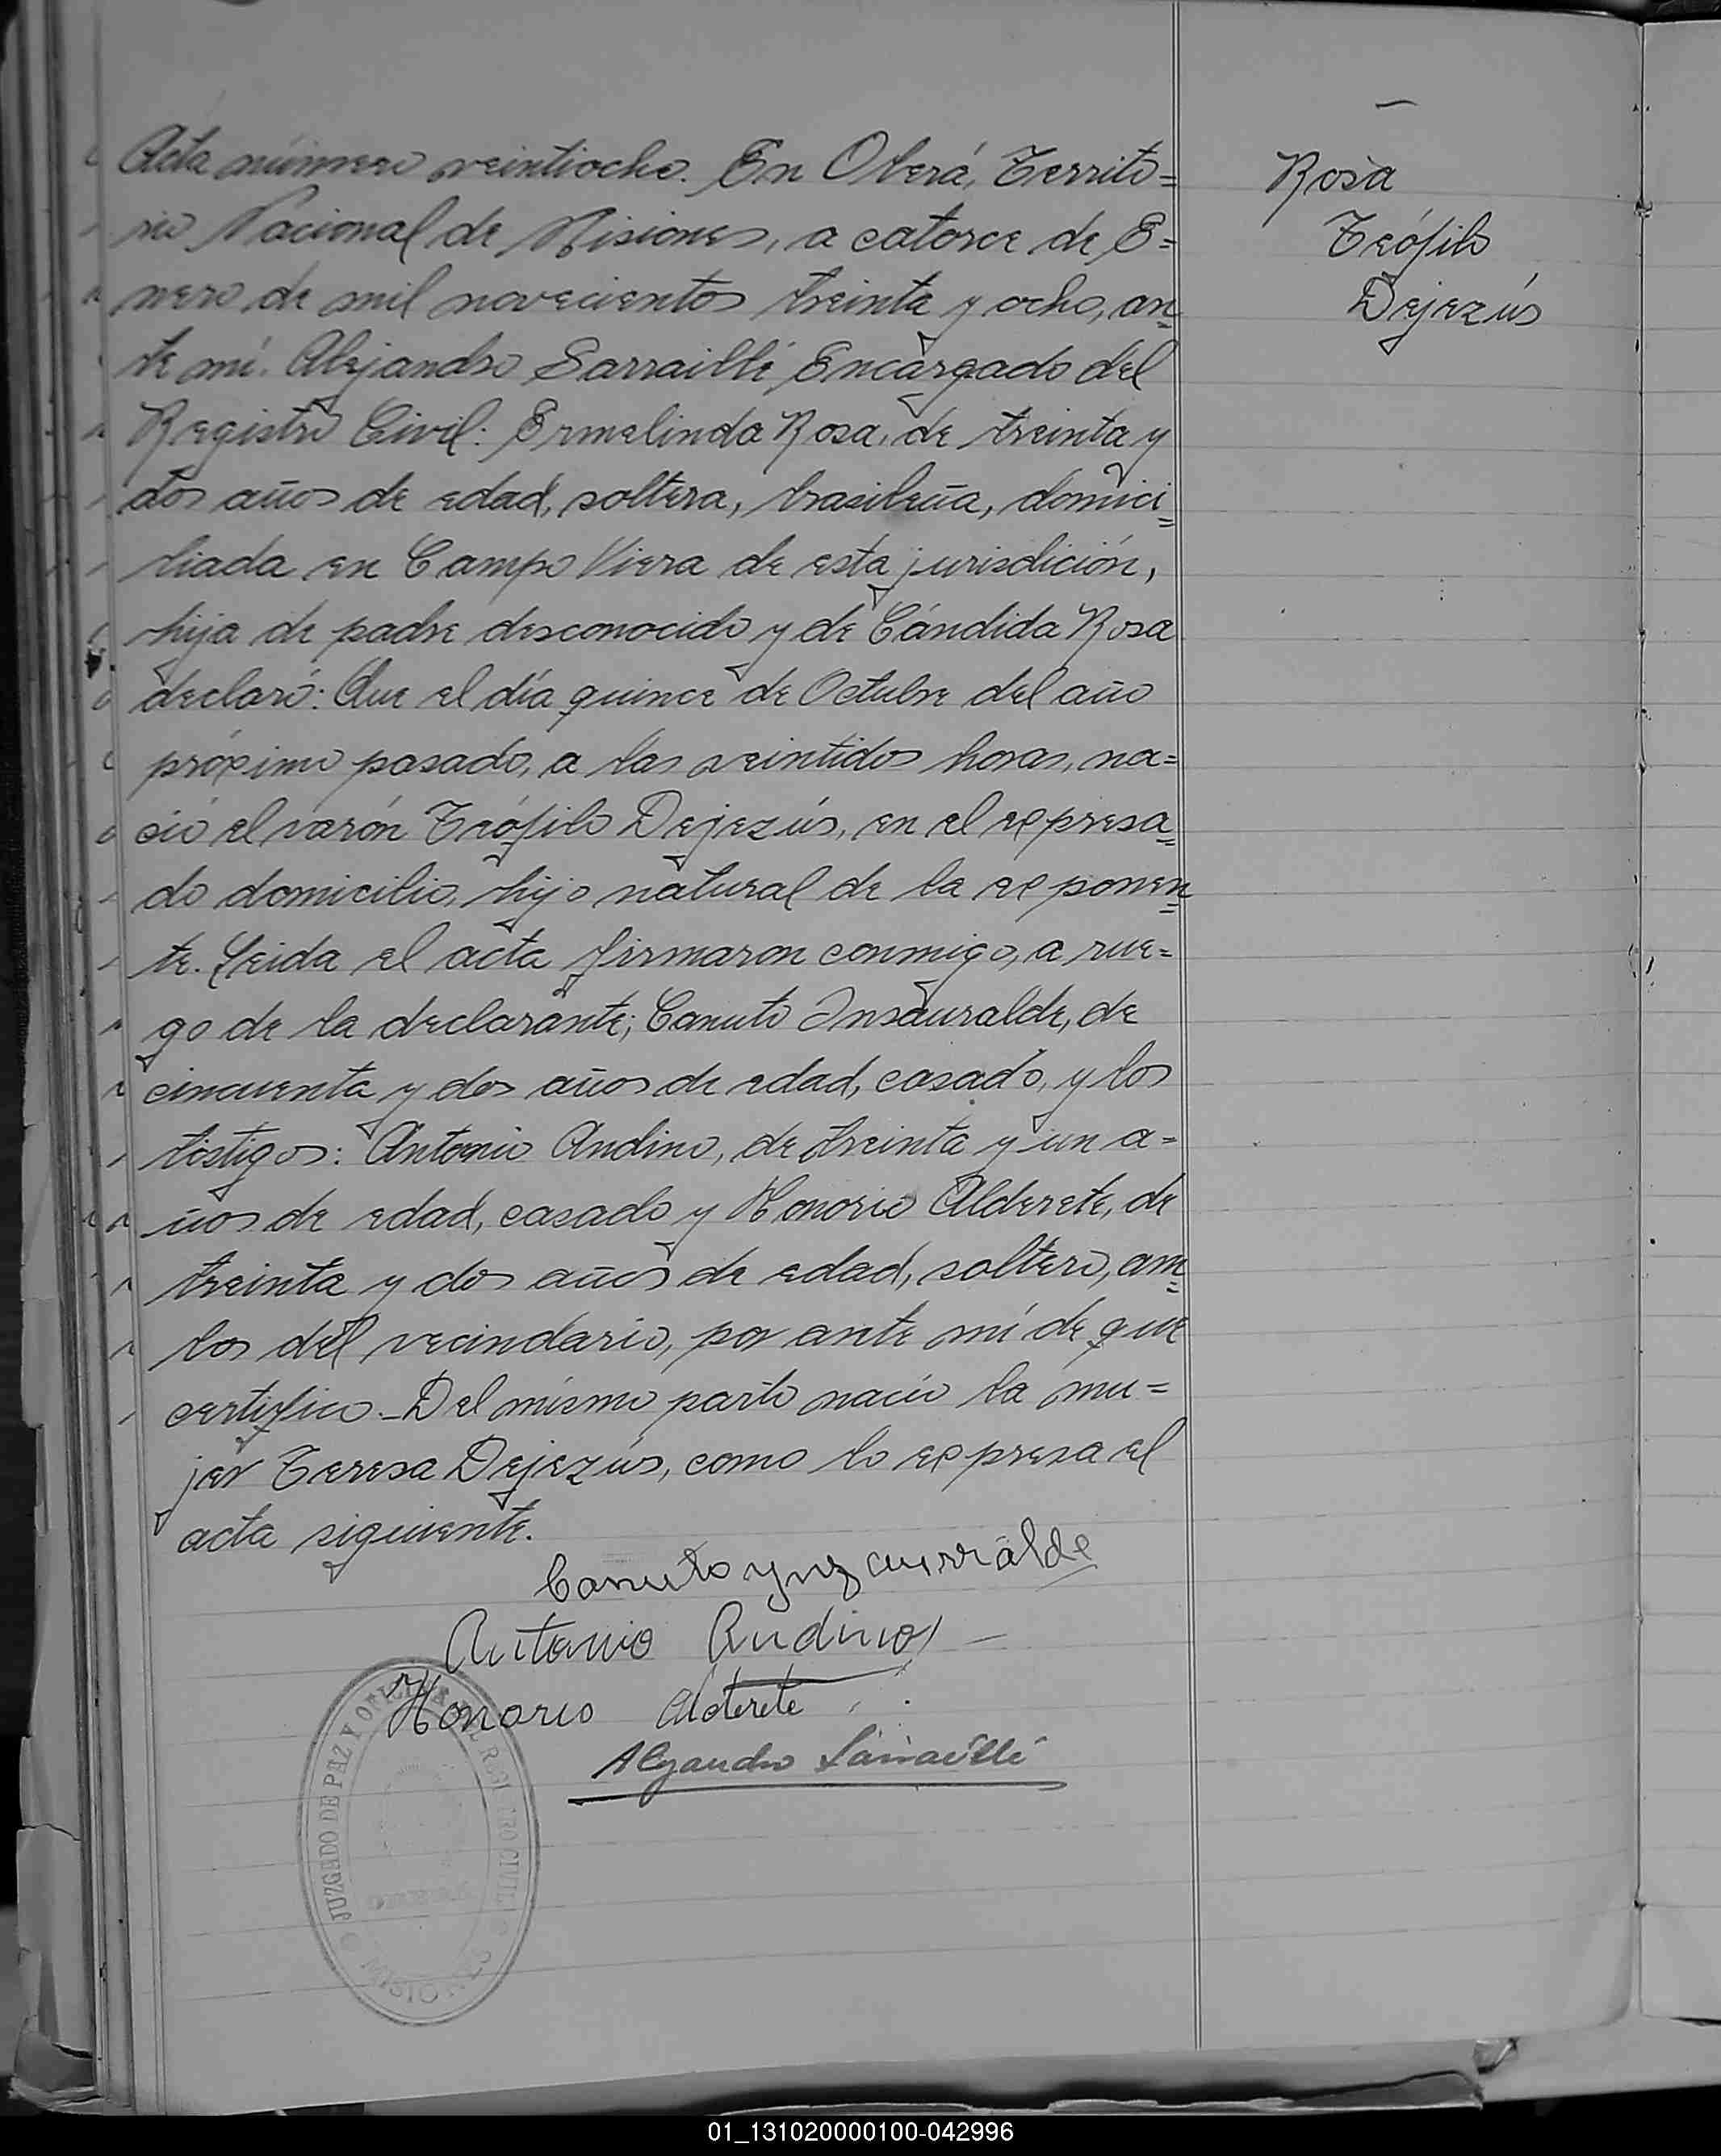 Acta número veintiocho. En Oberá, Territo=
rio Nacional de Misiones, a catorce de E=
nero de mil novecientos treinta y ocho, an=
te mí. Alejandro Sarraillé, Encargado del
Registro Civil: Ermelinda Rosa, de treinta y
dos años de edad, soltera, brasileña, domici=
liada en Campo Viera de esta jurisdición,
hija de padre desconocido y de Cándida Rosa
declaró: Que el día quince de Octubre del año
próximo pasado, a las veintidos horas, na=
ció el varón Teófilo Dejezús, en el expresa=
do domicilio, hijo natural de la exponen=
te. Leida el acta firmaron conmigo, a rue=
go de la declarante; Canuto Insauralde, de
cincuenta y dos años de edad, casado, y los
téstigos: Antonio Andino, de treinta y un a=
ños de edad, casado y Honorio Alderete, de
treinta y dos años de edad, soltero, am=
bos del vecindario, por ante mí de que
certifico._ Del mismo parto nació la mu=
jer Teresa Dejezús, como lo expresa el
acta siguiente.
Canuto ynzaurralde
Antonio Andino
Honorio Alderete
Alejandro Sarraillé
JUZGADO DE PAZ Y OFICINA DEL REGISTRO CIVIL
MISIONES
Rosa
Teófilo
Dejezús
01_131020000100-042996